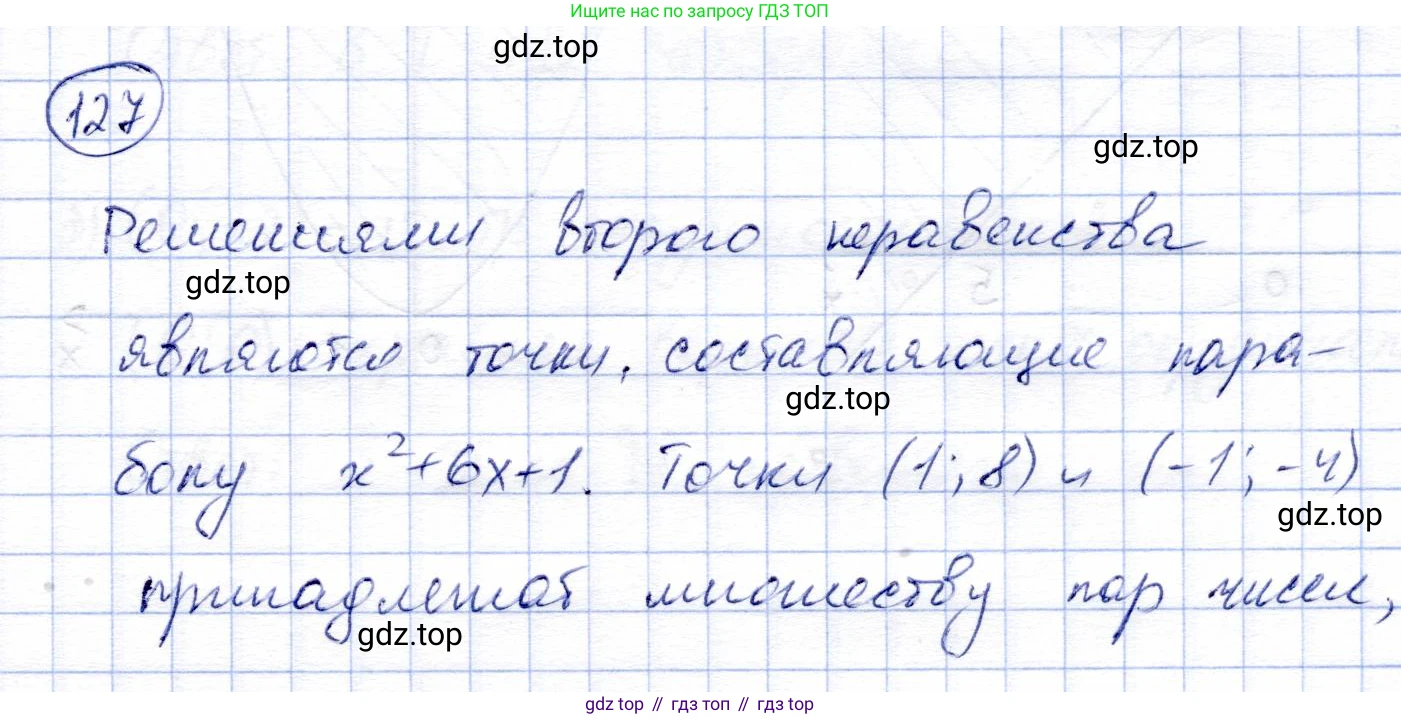 Ищите нас по запросу ГДЗ ТОП
gdz.top
127
gdz.top
Решениями второго неравенства
gdz.top
являются точки, составляющие пара-
gdz.top
болу x²+6x+1. Точки (1; 8) и (-1; -4)
gdz.top
принадлежат множеству пар чисел,
gdz.top
gdz top // гдз топ // gdz top